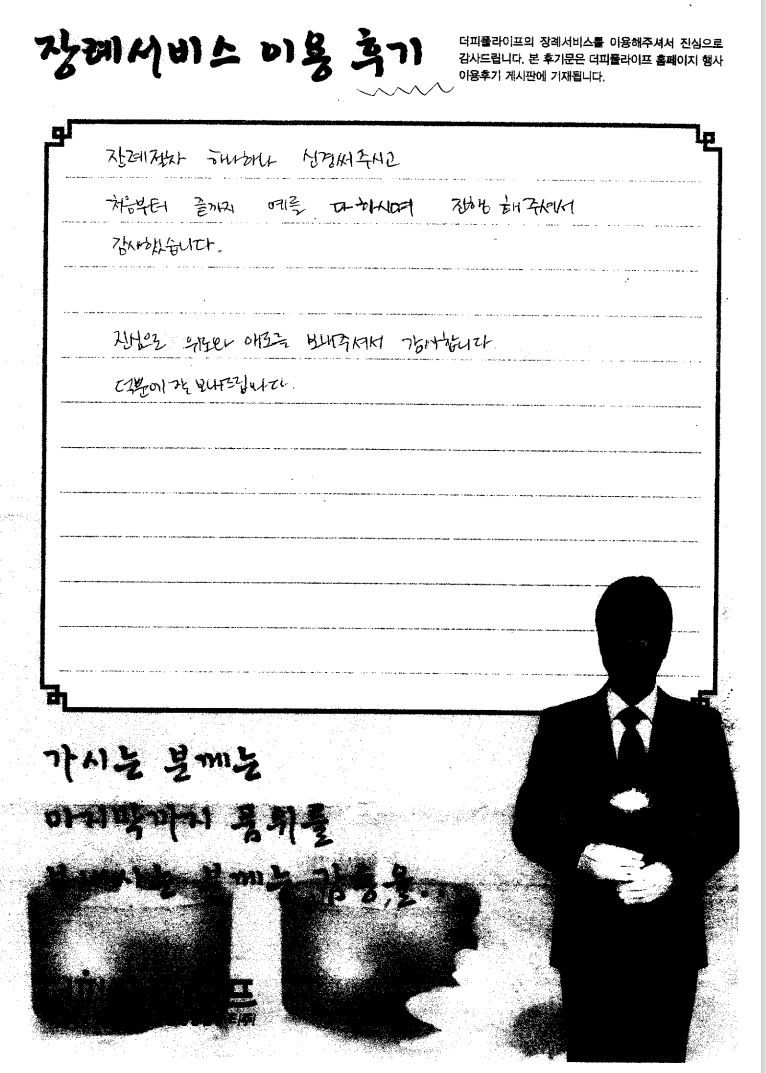 장례서비스 이용 후기
더피플라이프의 장례서비스를 이용해주셔서 진심으로
감사드립니다. 본 후기문은 더피플라이프 홈페이지 행사
이용후기 게시판에 기재됩니다.
장례절차 하나하나 신경써주시고
처음부터 끝까지 예를 다하시며 진행해주셔서
감사했습니다.
진심으로 위로와 애도를 보내주셔서 감사합니다
덕분에 잘 보내드립니다.
가시는 분께는
마지막까지 품위를
보내시는 분께는 감동을.